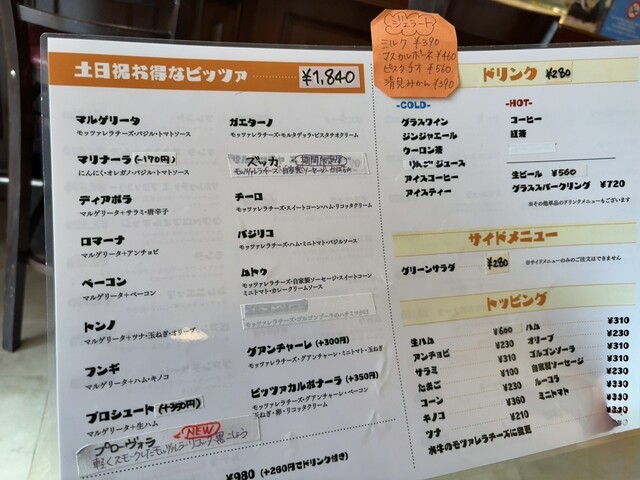 土日祝お得なピッツァ ¥1,840
マルゲリータ
モッツァレラチーズ・バジル・トマトソース
マリナーラ(-170円)
にんにく・オレガノ・バジル・トマトソース
ディアボラ
マルゲリータ+サラミ・唐辛子
ロマーナ
マルゲリータ+アンチョビ
ベーコン
マルゲリータ+ベーコン
トンノ
マルゲリータ+ツナ・玉ねぎ・オリーブ
フンギ
マルゲリータ+ハム・キノコ
プロシュート(+350円)
マルゲリータ+生ハム
プローヴォラ NEW
軽くスモークしたモッツァレラ・リコッタ・黒こしょう
ガエターノ
モッツァレラチーズ・モルタデッラ・ピスタチオクリーム
ズッカ 期間限定
モッツァレラチーズ・自家製ソーセージ・かぼちゃ
チーロ
モッツァレラチーズ・スイートコーン・ハム・リコッタクリーム
バジリコ
モッツァレラチーズ・ハム・ミニトマト・バジルソース
ムドゥ
モッツァレラチーズ・自家製ソーセージ・スイートコーン
ミニトマト・カレークリームソース
モッツァレラチーズ・ゴルゴンゾーラのハチミツがけ
グアンチャーレ(+300円)
モッツァレラチーズ・グアンチャーレ・ミニトマト・玉ねぎ
ピッツァカルボナーラ(+350円)
モッツァレラチーズ・グアンチャーレ・ベーコン
玉ねぎ・卵・リコッタクリーム
¥980(+280円でドリンク付き)
ジェラート
ミルク ¥390
マスカルポーネ ¥460
ピスタチオ ¥560
清見みかん ¥390
ドリンク ¥280
-COLD-
グラスワイン
ジンジャエール
ウーロン茶
りんごジュース
アイスコーヒー
アイスティー
-HOT-
コーヒー
紅茶
生ビール ¥560
グラススパークリング ¥720
※その他単品のドリンクメニューもございます
サイドメニュー
グリーンサラダ ¥280 ※サイドメニューのみのご注文はできません
トッピング
生ハム ¥600
アンチョビ ¥310
サラミ ¥230
たまご ¥100
コーン ¥230
キノコ ¥360
ツナ ¥210
水牛のモッツァレラチーズに変更
ハム ¥310
オリーブ ¥230
ゴルゴンゾーラ ¥310
自家製ソーセージ ¥310
ルーコラ ¥330
ミニトマト ¥230
¥330
¥310